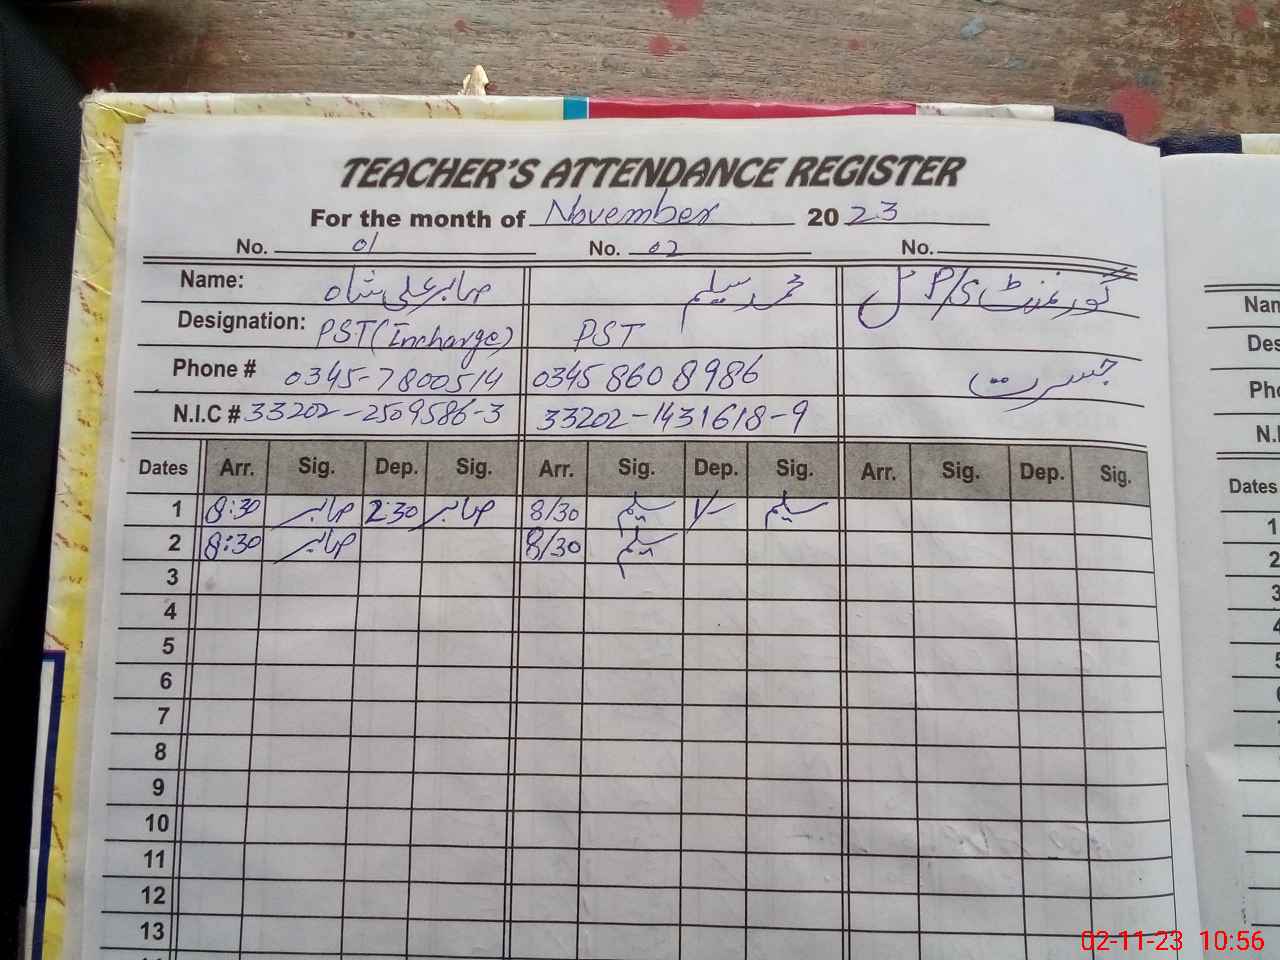 TEACHER'S ATTENDANCE REGISTER
For the month of November 2023
No. 01 No. 02 No.
Name: صابر علی شاہ محمد سلیم گورنمنٹ P/S
Designation: PST (Incharge) PST
Phone # 0345-7800514 0345 8608986
N.I.C # 33202-2509586-3 33202-1431618-9
Dates Arr. Sig. Dep. Sig. Arr. Sig. Dep. Sig. Arr. Sig. Dep. Sig.
1 8:30 صابر 2:30 صابر 8/30 سلیم سلیم
2 8:30 صابر 8/30 سلیم
3
4
5
6
7
8
9
10
11
12
13
Dates
1
2
3
4
5
02-11-23 10:56